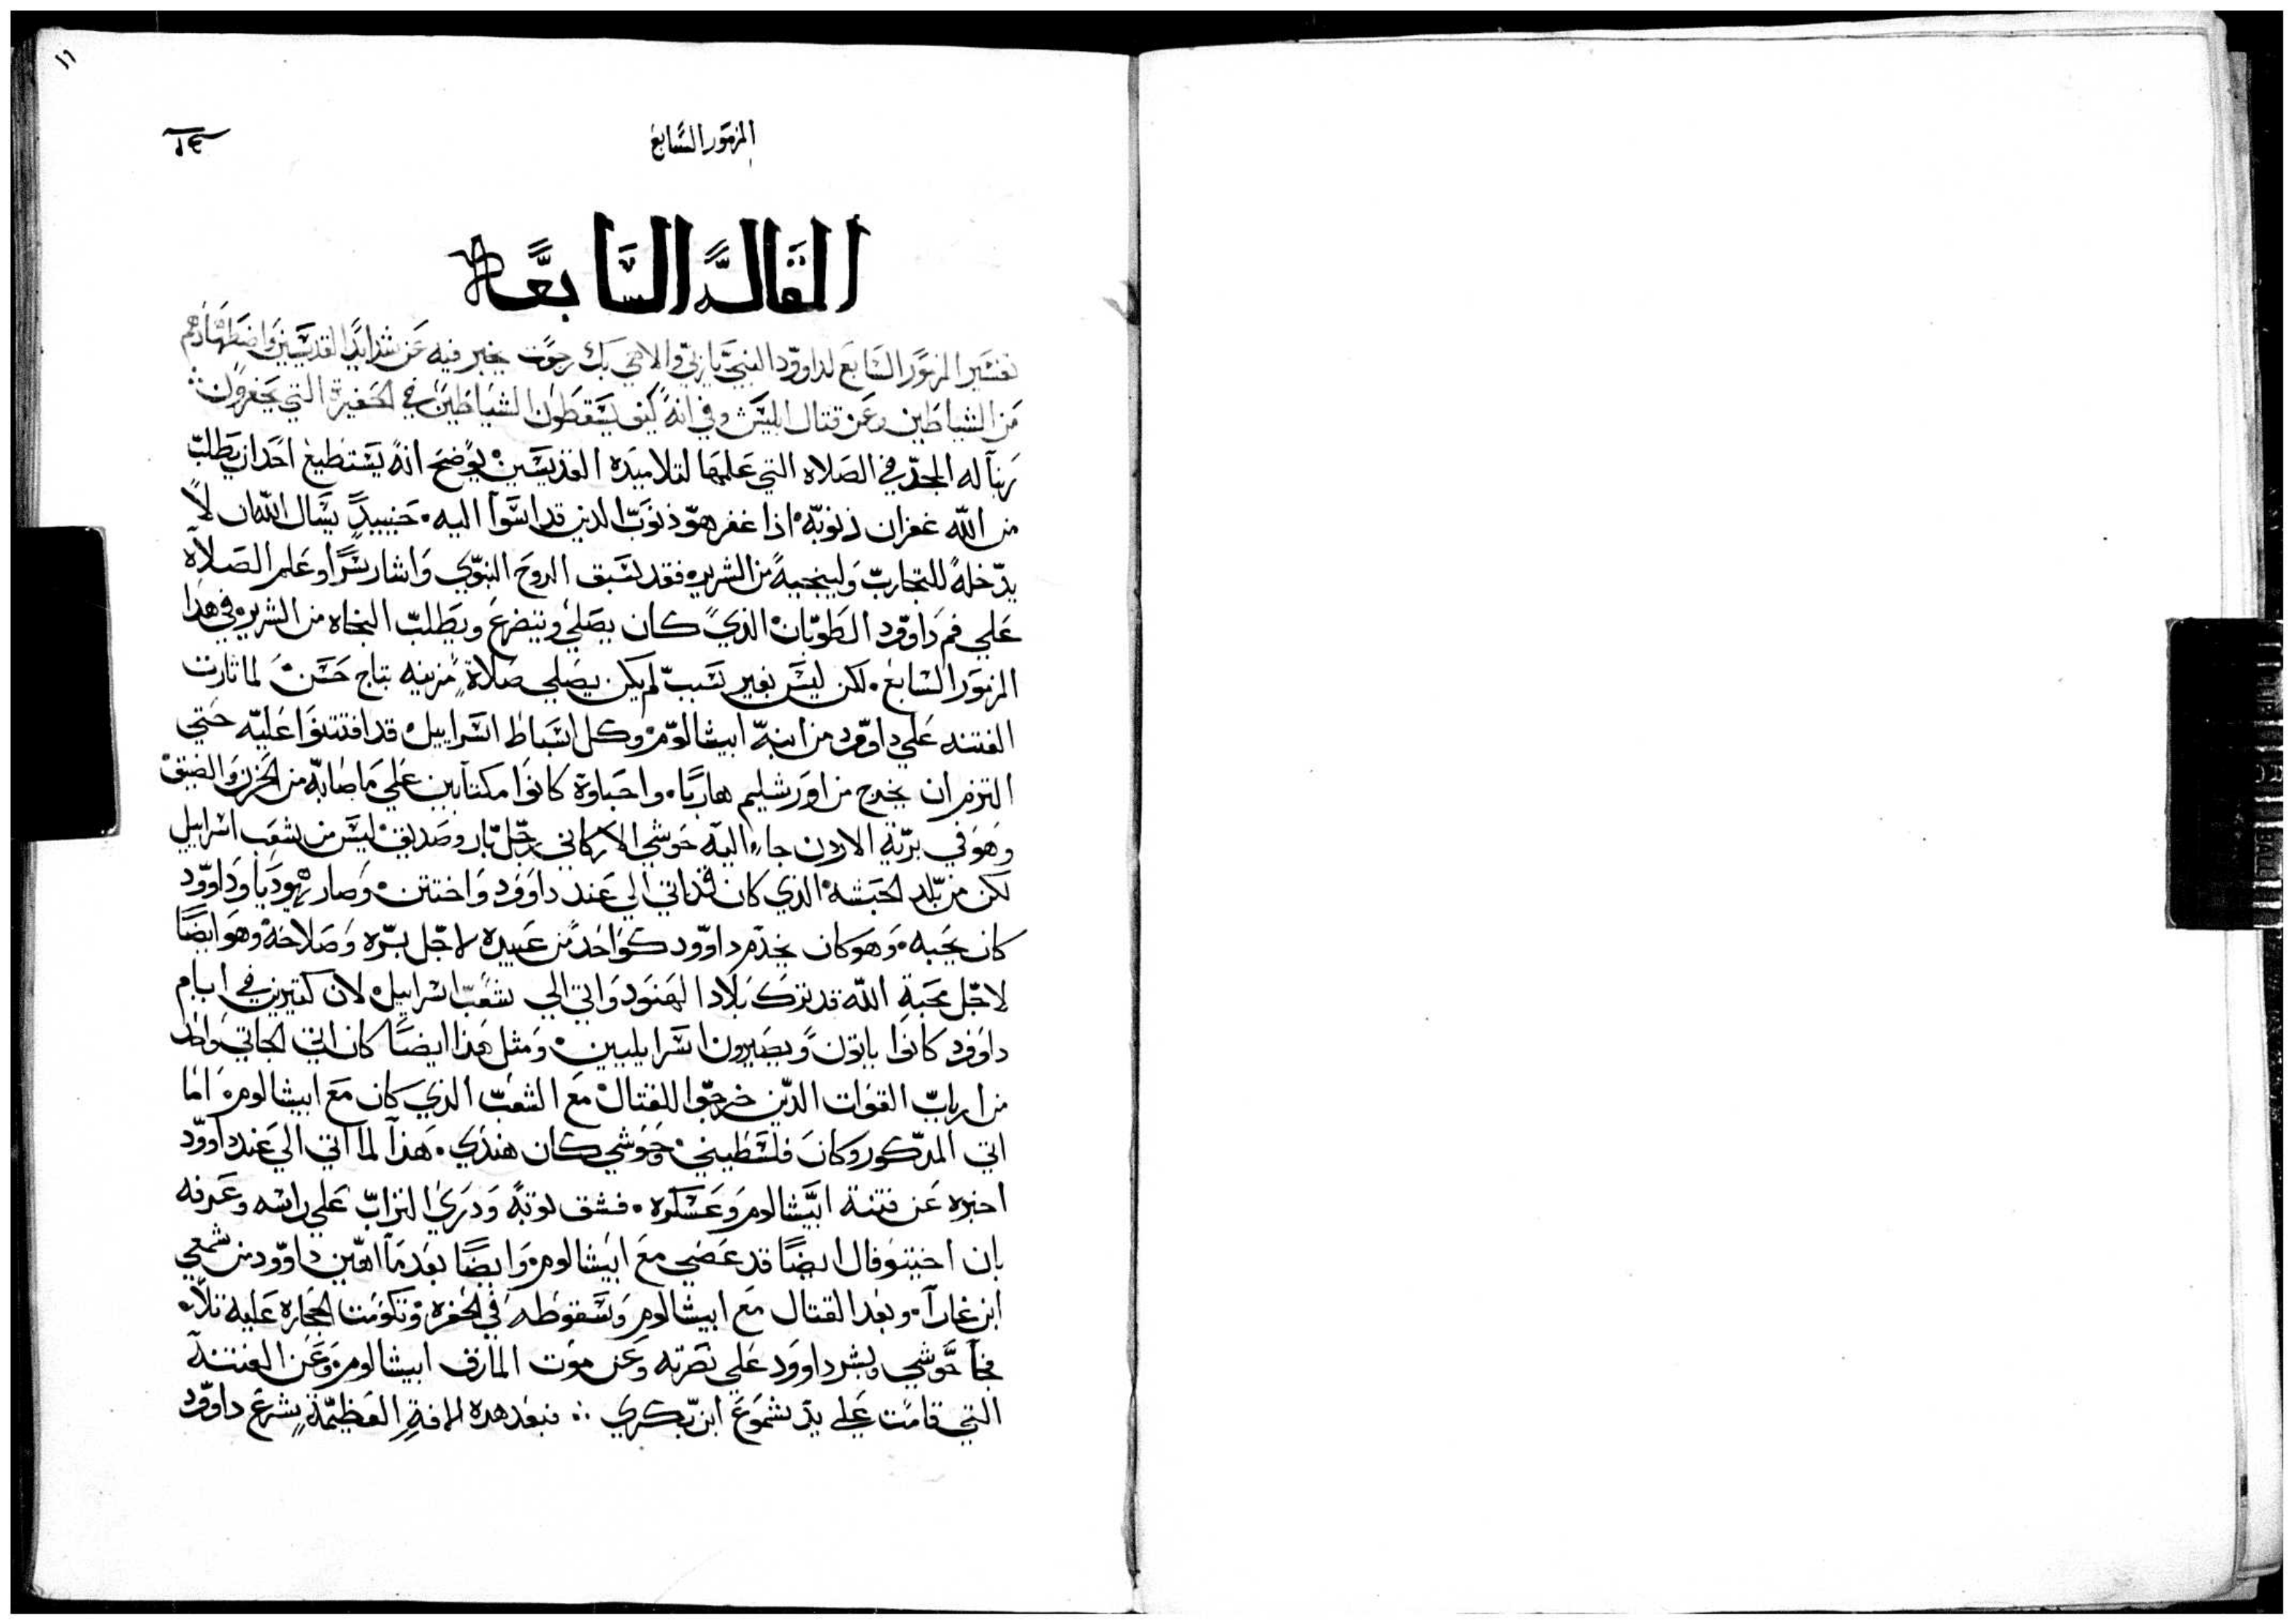 المزمور السابع
المقالة السابعة
تفسير المزمور السابع لداوود النبي يا ربي والاهي بك رجوت يخبر فيه عن شدايد القديسين واضطهادهم
من الشياطين وعن قتال ابليس وفي انه كيف يسقطون الشياطين في الحفيرة التي يحفرون
ربنا له المجد في الصلاه التي علمها لتلاميده القديسين يوضح انه يستطيع احد ان يطلب
من الله غفران ذنوبه اذا غفر هو ذنوب الدين قد اسوا اليه. حينيد يسال الله ان لا
يدخله للتجارب ولينجيه من الشرير فقد سبق الروح النبوي واشار سرا وعلم الصلاه
علي فم داوود الطوبان الذي كان يصلي ويتضرع ويطلب النجاه من الشرير في هدا
المزمور السابع. لكن ليس بغير سبب لم يكن يصلي صلاة مزينه بتاج حسن لما ثارت
الفتنه علي داوود من ابنه ابيشالوم وكل اسباط اسراييل قد افتتنوا عليه حتي
التزم ان يخرج من اورشليم هاربا. واحباوة كانوا مكتابين علي ما صابه من الحزن والضيق
وهو في برية الاردن جاء اليه حوشي الاركاني رجل بار وصديق ليس من شعب اسراييل
لكن من بلد الحبشه الذي كان قد اتي الي عند داوود واختتن وصار يهوديا وداوود
كان يحبه. وهو كان يخدم داوود كواحد من عبيده لاجل بره وصلاحه وهو ايضا
لاجل محبة الله قد ترك بلاد الهنود واتي الي شعب اسراييل لان كتيرين في ايام
داوود كانوا ياتون ويصيرون اسرايليين ومثل هذا ايضا كان اتي الجاتي واحد
من ارباب القوات الدين خرجوا للقتال مع الشعب الذي كان مع ابيشالوم اما
اتي المدكور وكان فلسطيني وحوشي كان هندي. هذا لما اتي الي عند داوود
اخبره عن فتنة ابيشالوم وعسكره. فشق توبه ودري التراب علي راسه وعرفه
بان اخيتوفال ايضا قد عصي مع ابيشالوم وايضا بعد ما اهين داوود من شمعي
ابن غارا. وبعد القتال مع ابيشالوم وسقوطه في الحفره وتكومت الحجاره عليه تلا.
فجا حوشي وبشر داوود علي نصرته وعن موت المارق ابيشالوم وعن الفتنة
التي قامت علي يد شموع ابن بكري فبعد هده الافة العظيمة شرع داوود